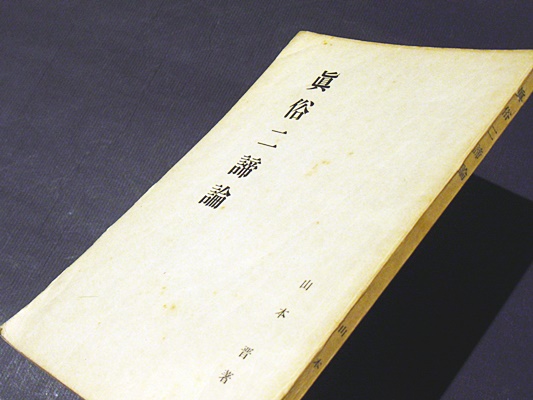 眞俗二諦論
山本 晋著
眞俗二諦論
山本